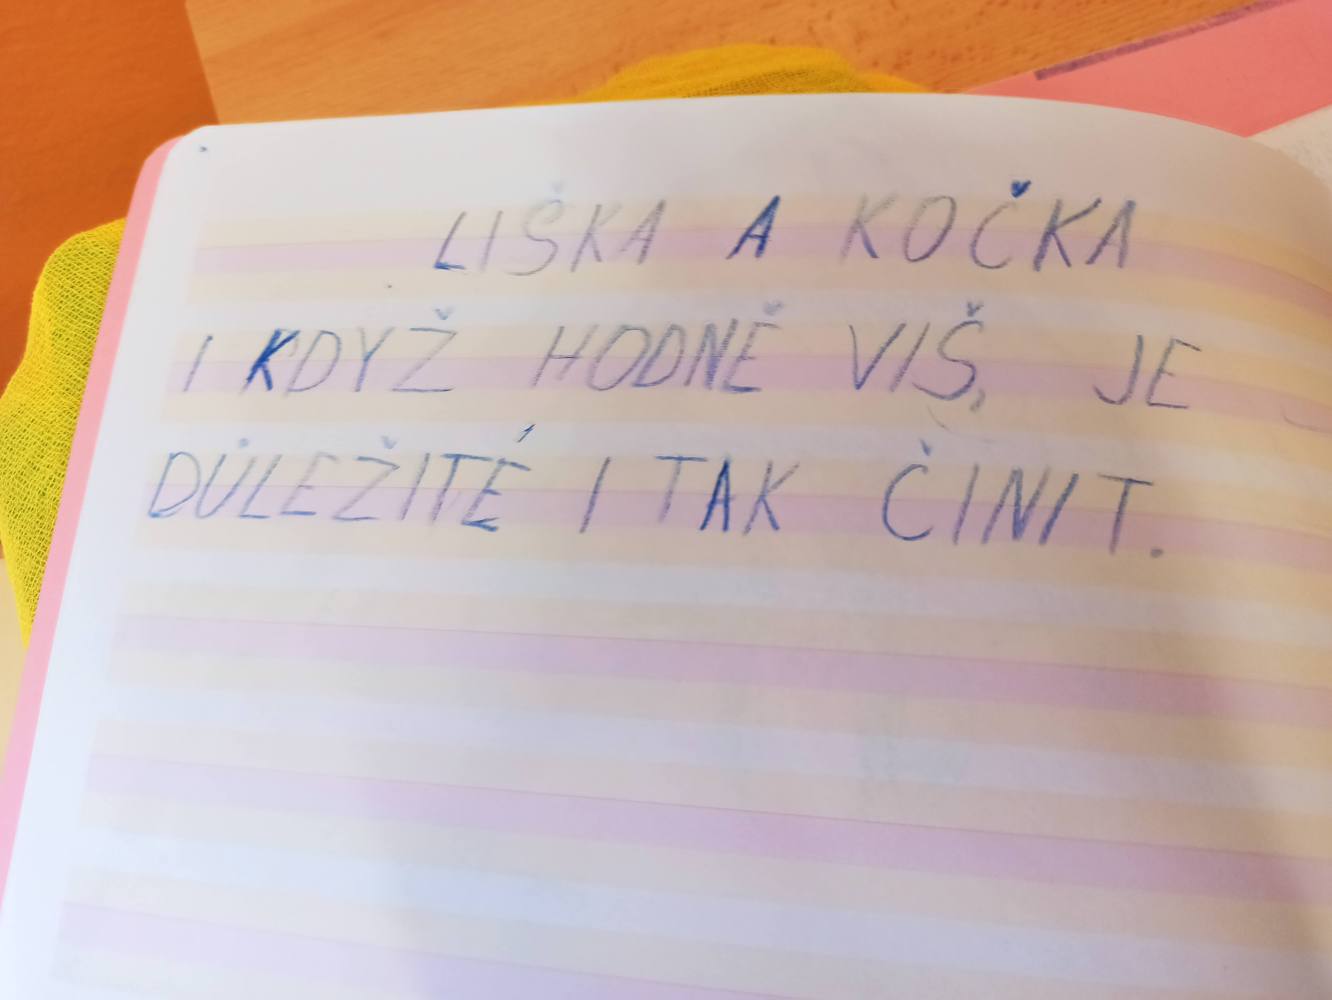 LIŠKA A KOČKA
I KDYŽ HODNĚ VIŠ, JE
DŮLEŽITÉ I TAK ČINIT.